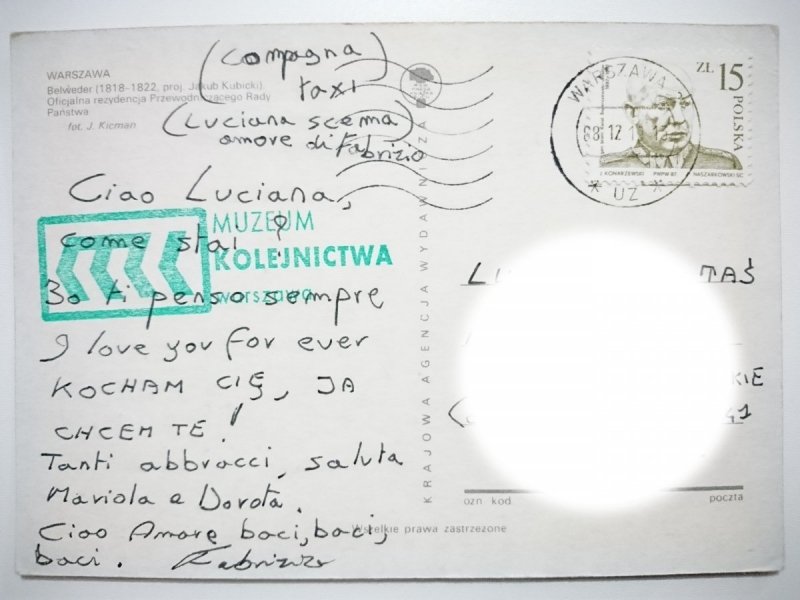 WARSZAWA
Belweder (1818-1822, proj. Jakub Kubicki).
Oficjalna rezydencja Przewodniczącego Rady
Państwa
fot. J. Kicman
(Compagna
taxi
(Luciana scema)
amore di Fabrizio
Ciao Luciana,
come stai ?
Io ti penso sempre
I love you for ever
KOCHAM CIĘ, JA
CHCEM TE!
Tanti abbracci, saluta
Mariola e Dorota.
Ciao Amore baci, baci,
baci. Fabrizio
MUZEUM
KOLEJNICTWA
warszawa
KRAJOWA AGENCJA WYDAWNICZA
Wszelkie prawa zastrzeżone
WARSZAWA
88.12.
* UZ *
ZŁ 15
POLSKA
J. KONARZEWSKI PWPW 87 NASZARKOWSKI SC.
LU TAŚ
KIE
41
ozn kod.
poczta